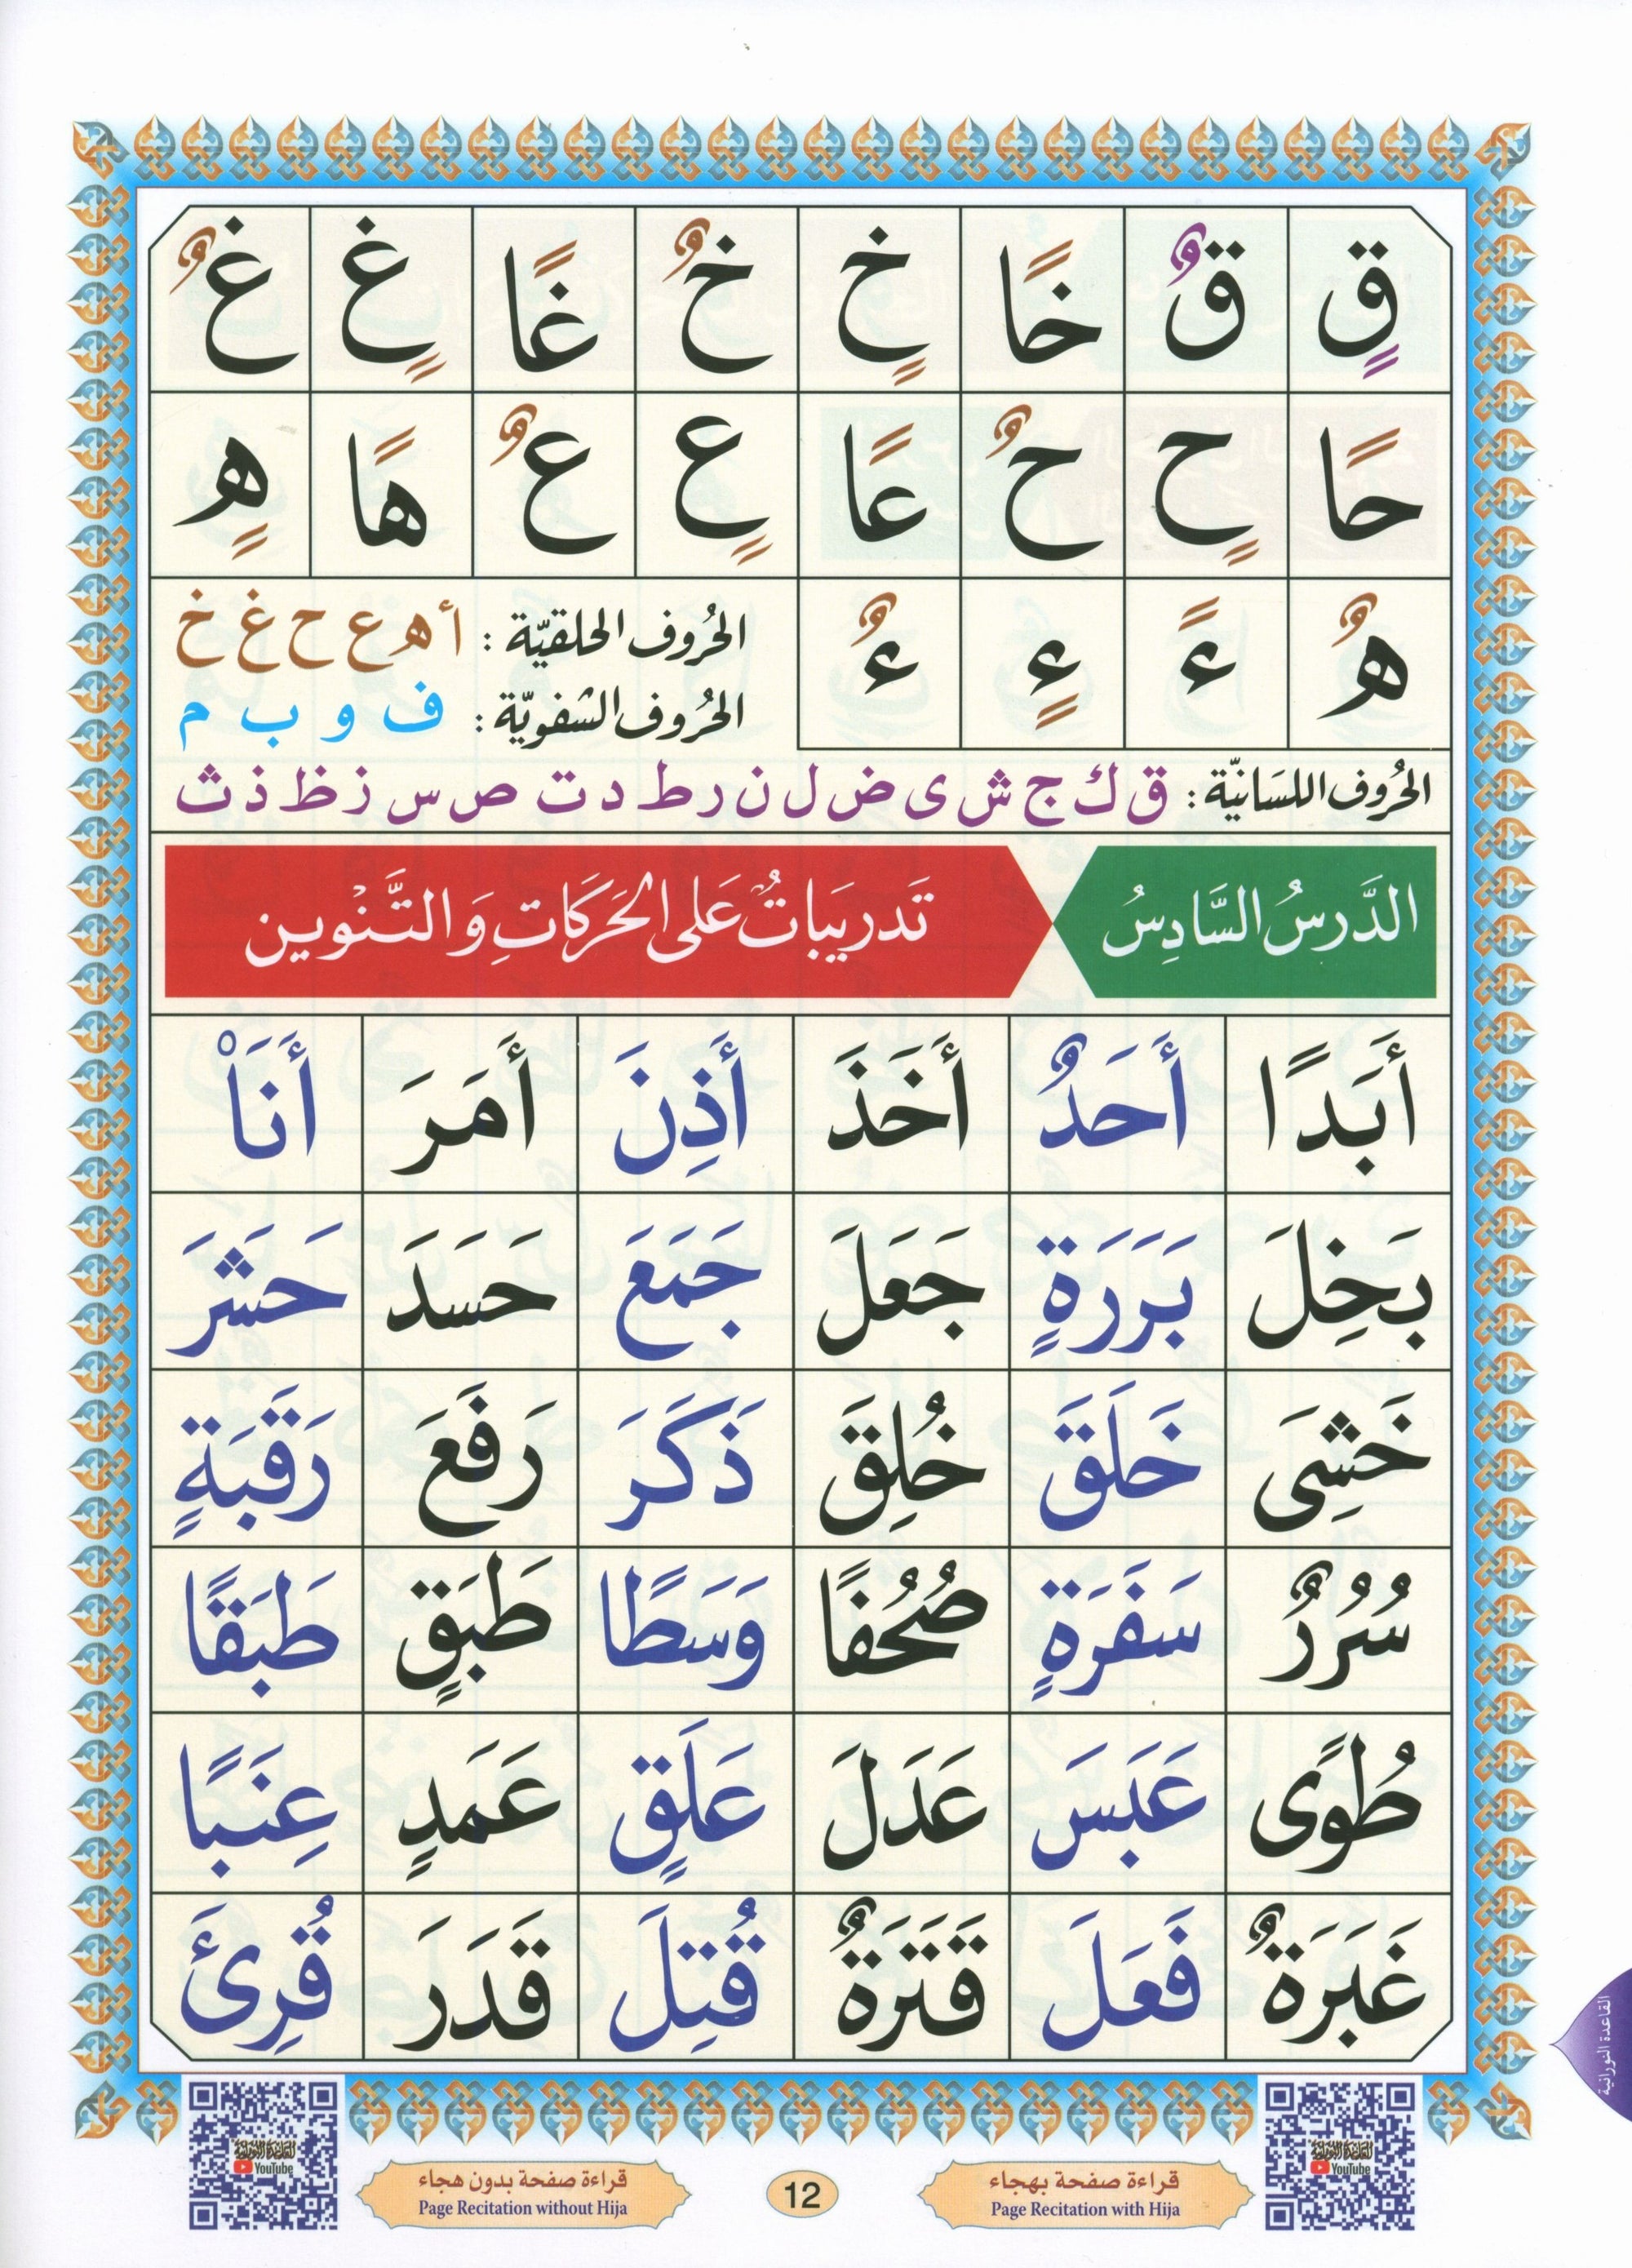 قٍ قٌ خًا خٍ خٌ غًا غٍ غٌ
حًا حٍ حٌ عًا عٍ عٌ هًا هٍ
هٌ ءً ءٍ ءٌ
الحُروف الحلقيّة : أ ه ع ح غ خ
الحُروف الشفويّة : ف و ب م
الحُروف اللسَانيّة : ق ك ج ش ى ض ل ن ر ط د ت ص س ز ظ ذ ث
الدَّرسُ السَّادِسُ تَدريَباتٌ عَلى الحَرَكَاتِ وَالتَّنْوين
أَبَدًا أَحَدٌ أَخَذَ أَذِنَ أَمَرَ أَنَاْ
بَخِلَ بَرَرَةٍ جَعَلَ جَمَعَ حَسَدَ حَشَرَ
خَشِىَ خَلَقَ خُلِقَ ذَكَرَ رَفَعَ رَقَبَةٍ
سُرُرٌ سَفَرَةٍ صُحُفًا وَسَطًا طَبَقٍ طَبَقًا
طُوًى عَبَسَ عَدَلَ عَلَقٍ عَمَدٍ عِنَبًا
غَبَرَةٌ فَعَلَ قَتَرَةٌ قُتِلَ قَدَرَ قُرِئَ
القاعدة النورانية
القاعدة النورانية
YouTube
قراءة صفحة بهجاء
Page Recitation with Hija
12
قراءة صفحة بدون هجاء
Page Recitation without Hija
القاعدة النورانية
YouTube